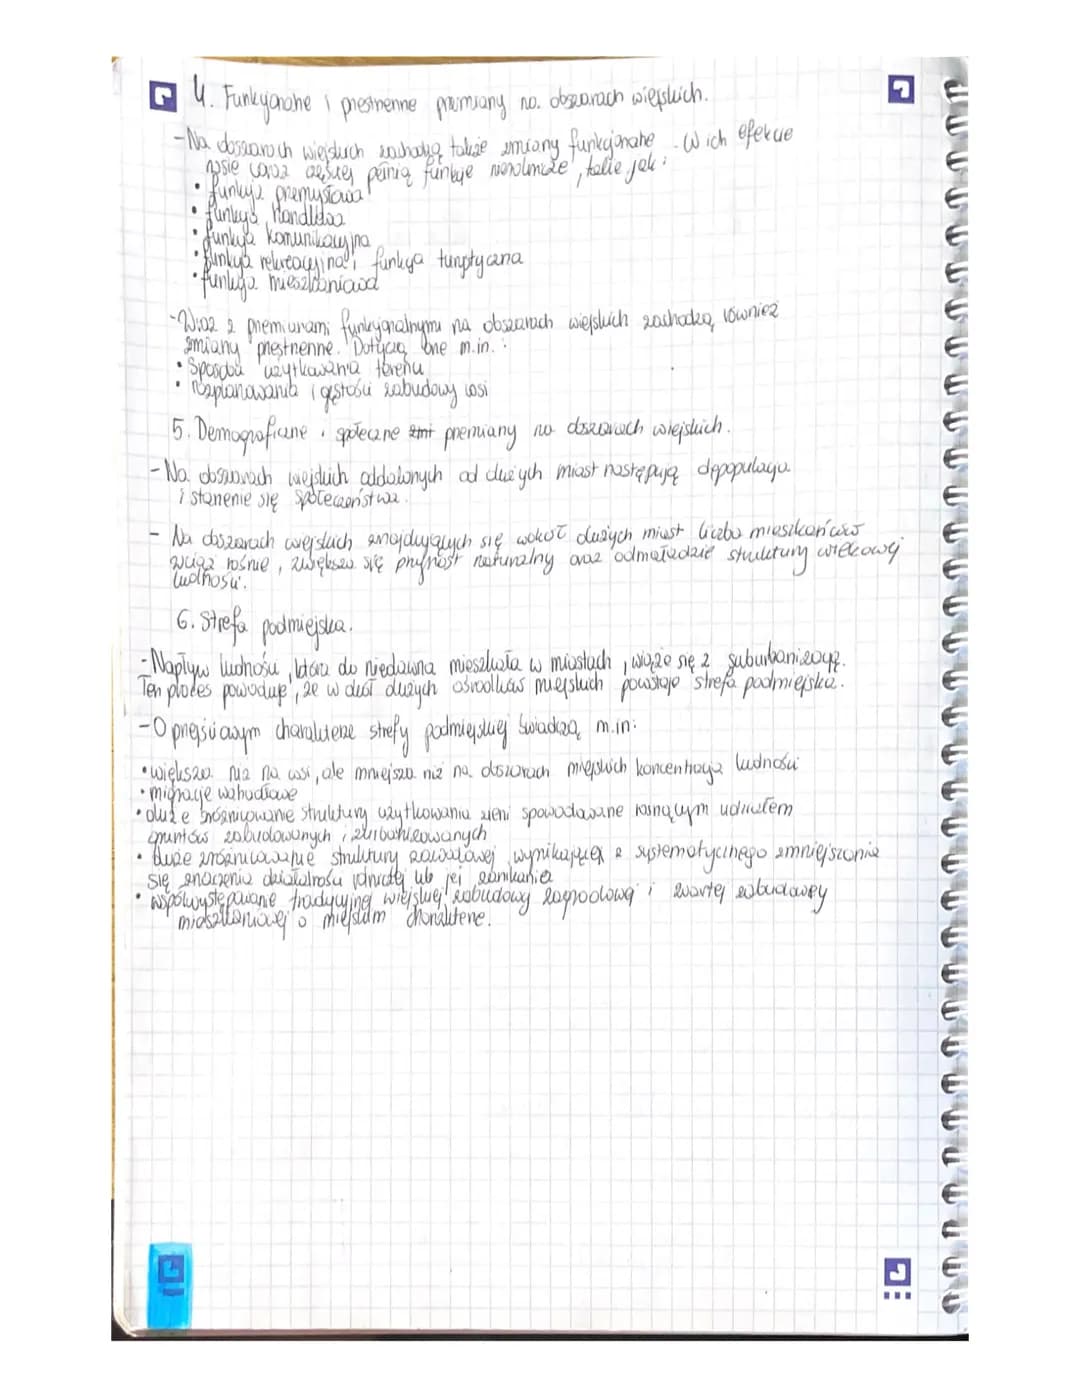 4. Funkcjonalne i przestrzenne przemiany na obszarach wiejskich.
- Na obszarach wiejskich zachodzą także zmiany funkcjonalne. W ich efekcie
wsie coraz częściej pełnią funkcje nierolnicze, takie jak:
• funkcja przemysłowa
• funkcja Handlowa
• funkcja komunikacyjna
• funkcja rekreacyjna i funkcja turystyczna
• funkcja mieszkaniowa
- Wraz z przemianami funkcjonalnymi na obszarach wiejskich zachodzą również
zmiany przestrzenne. Dotyczą one m.in.:
• Sposobu użytkowania terenu
• rozplanowania i gęstości zabudowy wsi
5. Demograficzne i społeczne zmi przemiany na obszarach wiejskich.
- Na obszarach wiejskich oddalonych od dużych miast następują depopulacja
i starzenie się społeczeństwa.
- Na obszarach wiejskich znajdujących się wokół dużych miast liczba mieszkańców
wciąż rośnie, zwiększa się przyrost naturalny oraz odmładza się struktury wiekowej
ludności.
6. Strefa podmiejska.
- Napływ ludności, która do niedawna mieszkała w miastach, wiąże się z suburbanizacją.
Ten proces powoduje, że wokół dużych ośrodków miejskich powstaje strefa podmiejska.
- O przejściowym charakterze strefy podmiejskiej świadczą m.in:
• większa niż na wsi, ale mniejsza niż na obszarach miejskich koncentracja ludności
• migracje wahadłowe
• duże zróżnicowanie struktury użytkowania ziemi spowodowane rosnącym udziałem
gruntów zabudowanych i zurbanizowanych
• duże zróżnicowanie struktury zawodowej wynikającej z systematycznego zmniejszania
się znaczenia działalności rolniczej lub jej zanikania
• współwystępowanie tradycyjnej wiejskiej zabudowy zagrodowej i zwartej zabudowy
mieszkaniowej o miejskim charakterze.